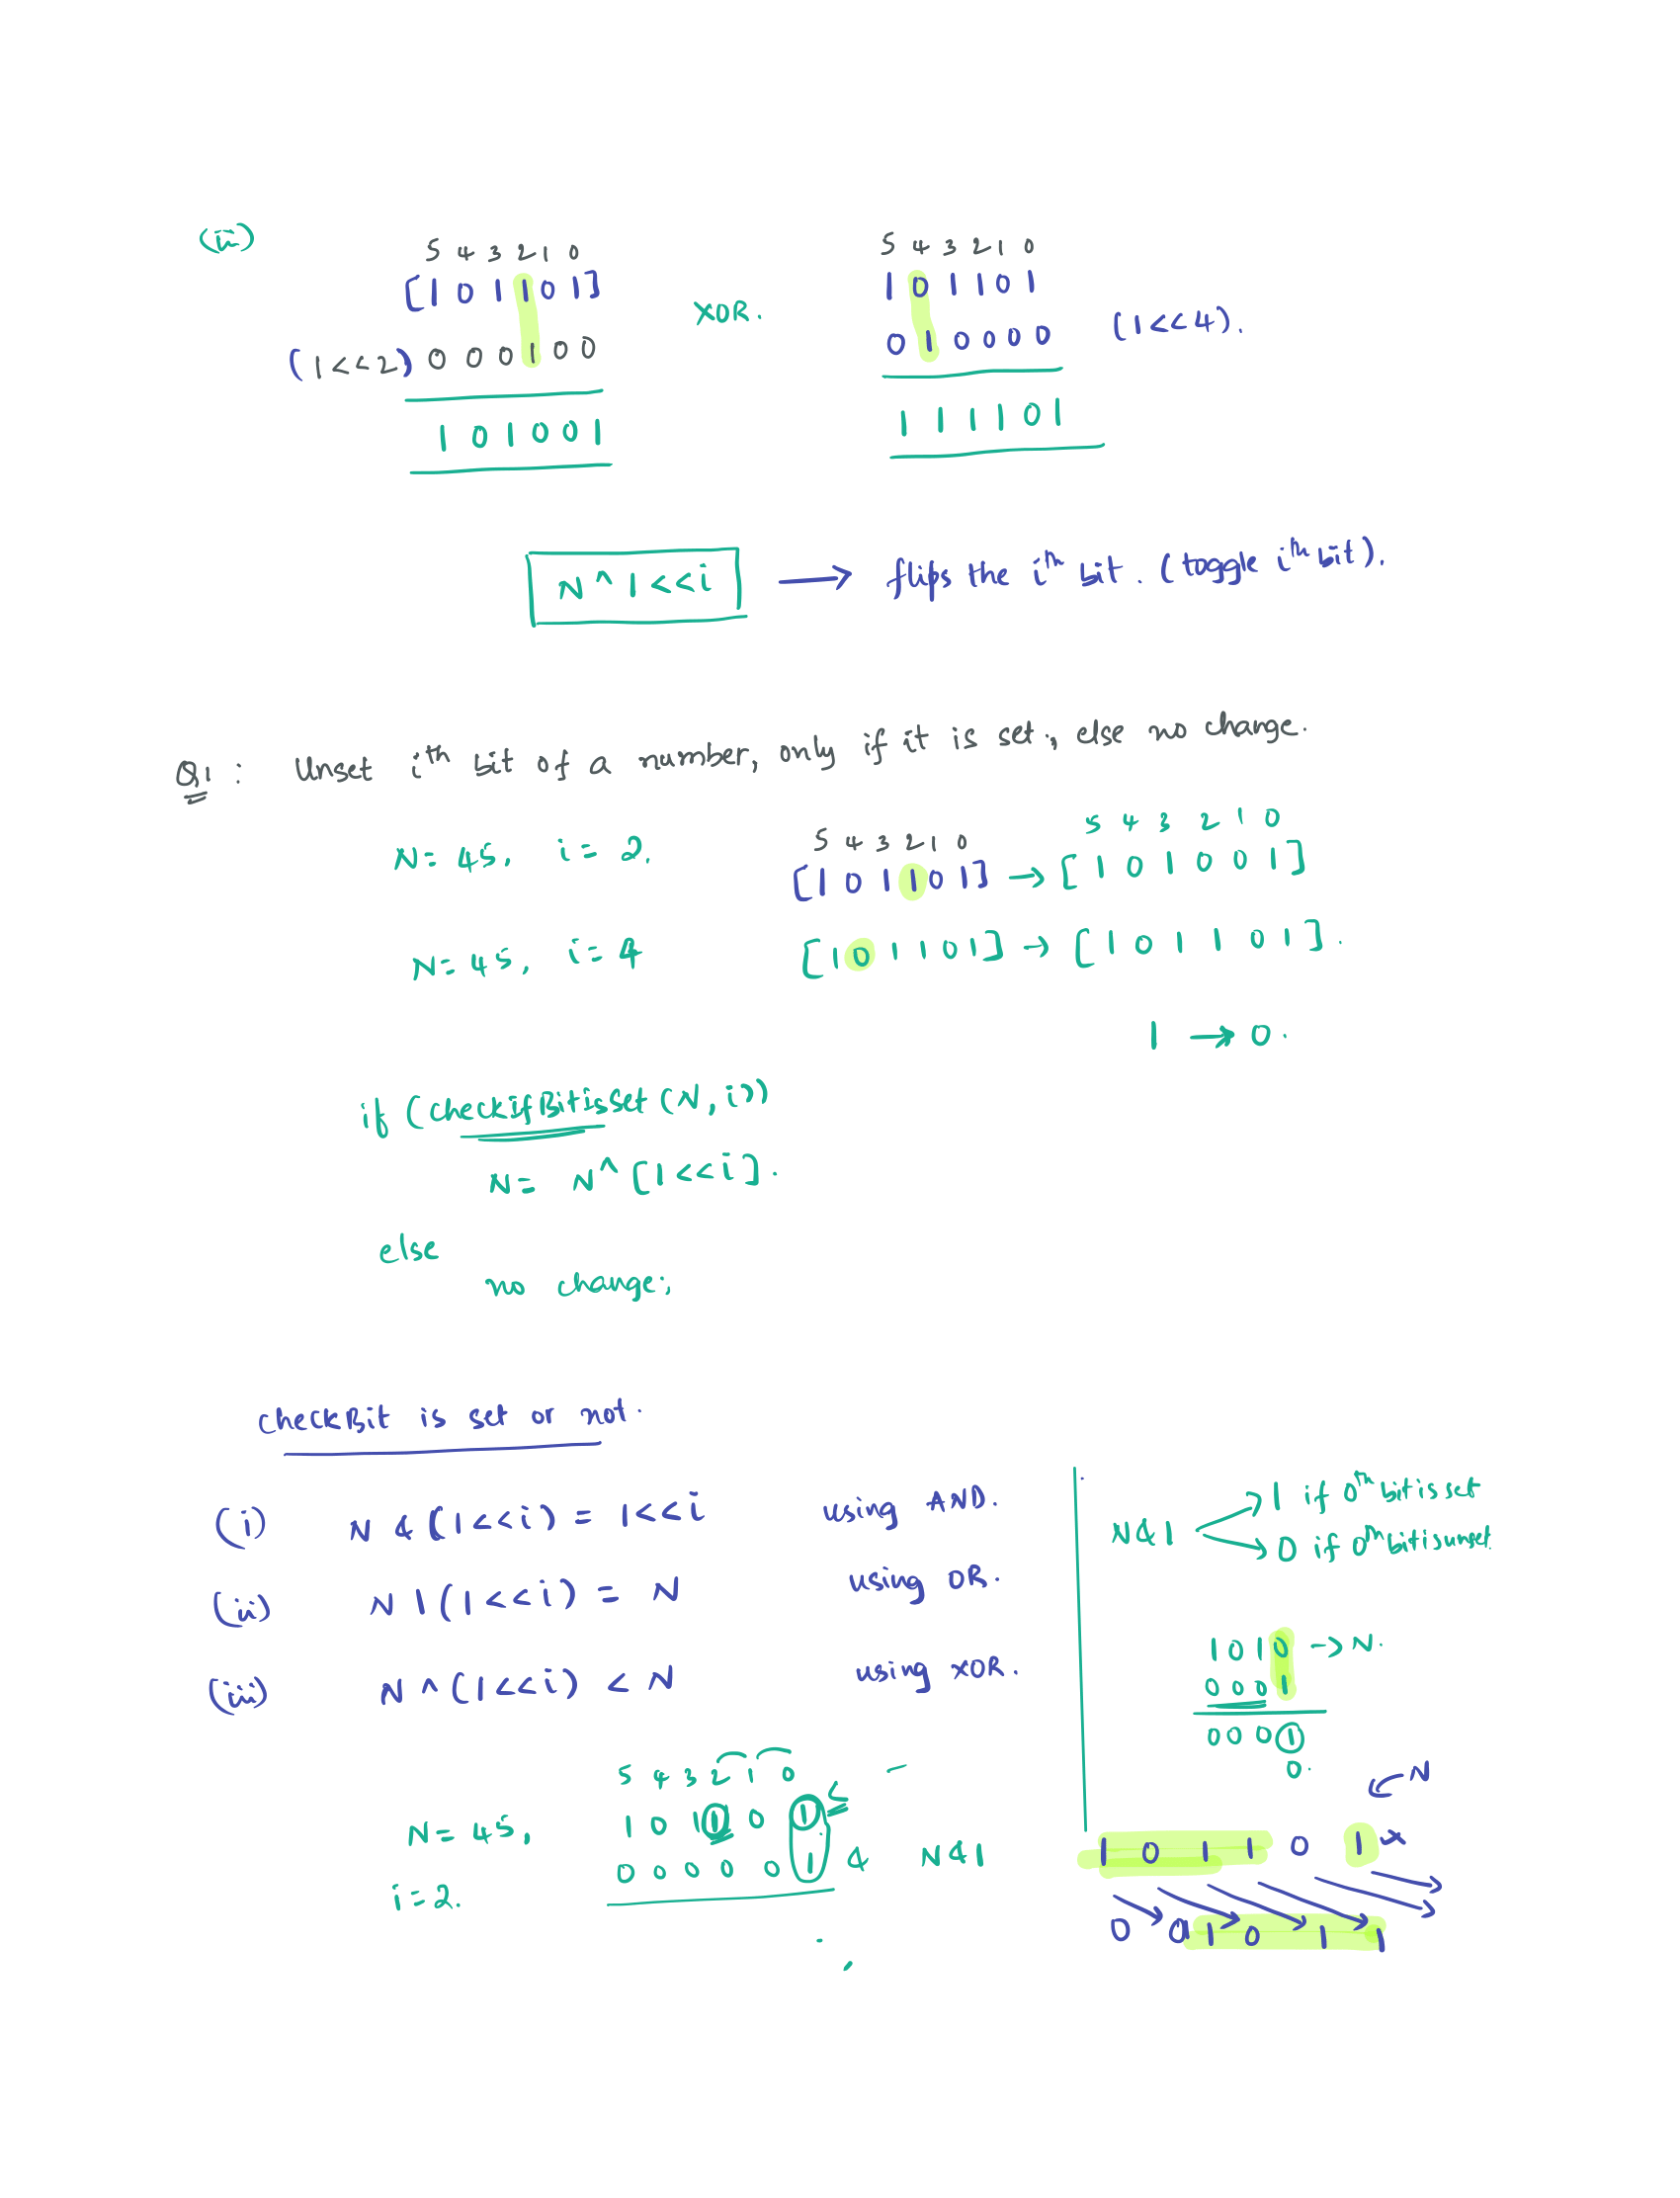 (ii)
5 4 3 2 1 0
[1 0 1 1 0 1]
(1<<2) 0 0 0 1 0 0
1 0 1 0 0 1
XOR.
5 4 3 2 1 0
1 0 1 1 0 1
0 1 0 0 0 0 (1<<4).
1 1 1 1 0 1
N ^ 1<<i → flips the ith bit. (toggle ith bit).
Q1 : Unset ith bit of a number, only if it is set, else no change.
N = 45, i = 2.
5 4 3 2 1 0 5 4 3 2 1 0
[1 0 1 1 0 1] → [1 0 1 0 0 1]
N = 45, i = 4 [1 0 1 1 0 1] → [1 0 1 1 0 1].
1 → 0.
if (checkifBitisSet (N, i))
N = N^[1<<i].
else
no change;
checkBit is set or not.
(i) N & (1<<i) = 1<<i using AND.
(ii) N | (1<<i) = N using OR.
(iii) N ^ (1<<i) < N using XOR.
N&1 → 1 if 0th bit is set
→ 0 if 0th bit is unset.
1 0 1 0 → N.
0 0 0 1
0 0 0 1
0.
5 4 3 2 1 0
N = 45, 1 0 1 1 0 1
0 0 0 0 0 1 & N&1
i = 2.
← N
1 0 1 1 0 1 x
0 0 1 0 1 1